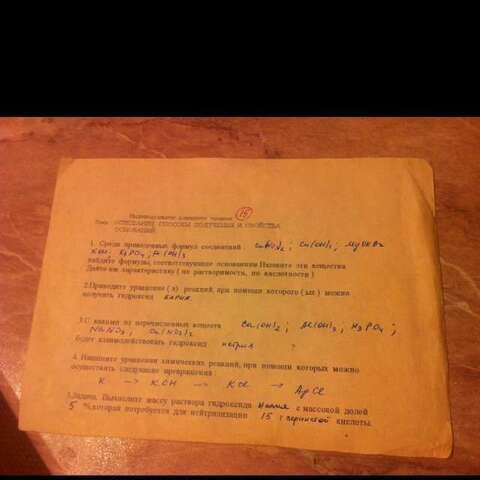 Индивидуальное домашнее задание (15)
Тема: ОСНОВАНИЯ. СПОСОБЫ ПОЛУЧЕНИЯ И СВОЙСТВА
ОСНОВАНИЙ.
1. Среди приведенных формул соединений : Ca(OH)2 ;
KOH. K3PO4 ;
найдите формулы, соответствующие основаниям.Назовите эти вещества
Дайте им характеристику ( по растворимости, по кислотности )
2.Приведите уравнение (я) реакций, при помощи которого (ых) можно
получить гидроксид бария.
3.С какими из перечисленных веществ Ba(OH)2 ; Al(OH)3 ; H3PO4 ;
NaNO3 , Ca(NO3)2
будет взаимодействовать гидроксид натрия ?
4. Напишите уравнения химических реакций, при помощи которых можно
осуществить следующие превращения :
K --> KOH --> KCl --> AgCl
5.Задача. Вычислите массу раствора гидроксида натрия с массовой долей
5 %,который потребуется для нейтрализации 15 г серной кислоты.